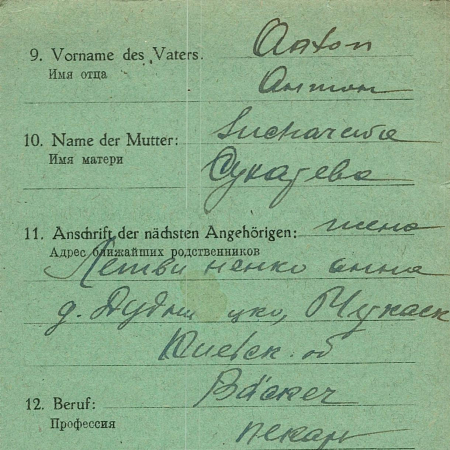 9. Vorname des Vaters. Anton
Имя отца Антон
10. Name der Mutter: Sucharewa
Имя матери Сухарева
11. Anschrift der nächsten Angehörigen: жена
Адрес ближайших родственников
Литвиненко Анна
д.
Киевск. об
12. Beruf: Bäcker
Профессия пекарь